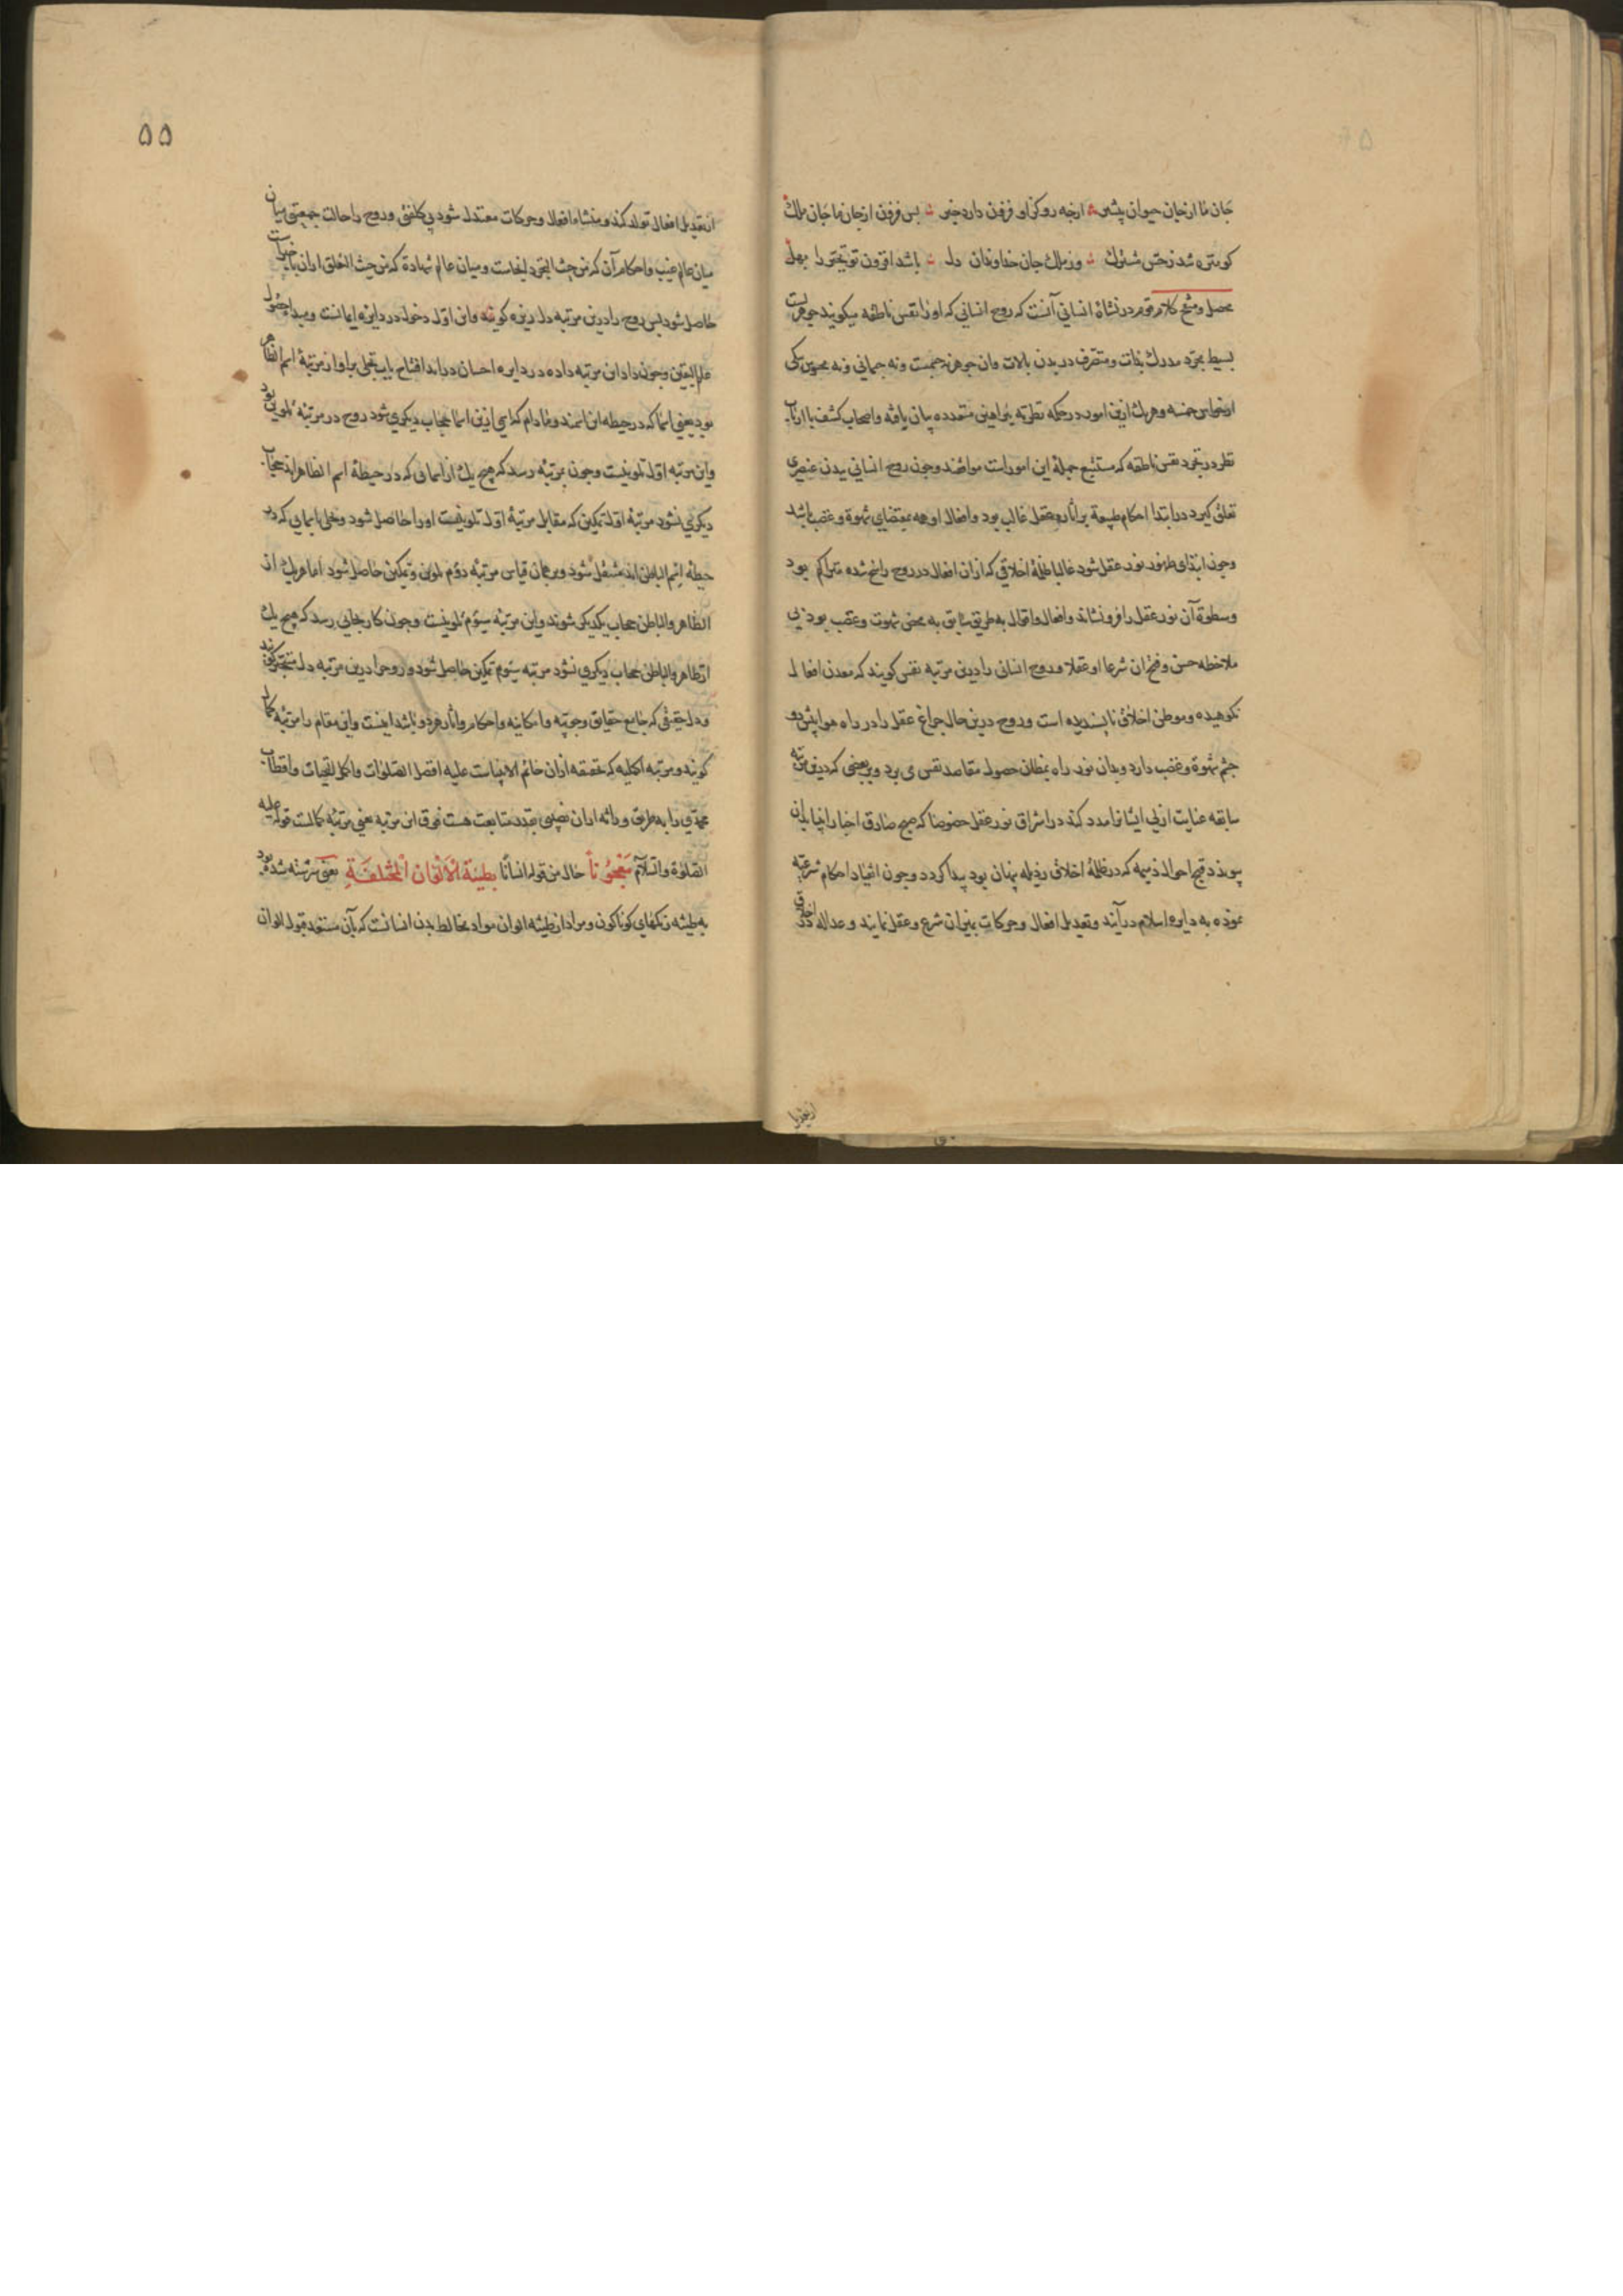 جان ما از جان حیوان بیشتر از چه رو کز او فزون دارد خبر پس فزون از جان ما جان ملک
کو منزه شد ز حس مشترک وز ملک جان خداوندان دل باشد افزون تو تحیر را بهل
محصل و منقح کلام قوم در نشاة انسانی آنست که روح انسانی که او را نفس ناطقه میگویند جوهریست
بسیط مجرد مدرک بذات و متصرف در بدن بالات و آن جوهر نه جسمست و نه جسمانی و نه محسوس بیکی
از حواس خمسه و هر یک ازین امور در حکمه نظریه ببراهین متعدده بیان یافته و اصحاب کشف با ارباب
نظر در تجرد نفس ناطقه که مستتبع جملهٔ این امور است موافقند و چون روح انسانی ببدن عنصری
تعلق گیرد در ابتدا احکام طبیعة بر آثار عقل غالب بود و افعال او همه بمقتضای شهوة و غضب باشد
و چون ابتدای ظهور نور عقل شود غالبا ظلمهٔ اخلاقی که از آن افعال در روح راسخ شده متراکم بود
و سطوة آن نور عقل را فرو نشاند و افعال و اقوال به طریق سابق به محض شهوت و غضب بود بی
ملاحظه حسن و قبح آن شرعا او عقلا و روح انسانی را درین مرتبه نفس گویند که معدن افعال
نکوهیده و موطن اخلاق ناپسندیده است و روح درین حال چراغ عقل را در راه هوا پیش رو
چشم شهوة و غضب دارد و بدان نور راه بمظان حصول مقاصد نفس می برد و بر بعضی که درین مرتبه
سابقه عنایت ازلی ایشانرا مدد کند در اشراق نور عقل خصوصا که صبح صادق اخبار انبیا بدان
پیوندد قبح احوال ذمیمه که در ظلمهٔ اخلاق رذیله پنهان بود پیدا گردد و چون انقیاد احکام شرعیه
نموده به دایره اسلام درآیند و تعدیل افعال و حرکات بمیزان شرع و عقل نمایند و عداله در اخلاق
۵۵
از تعدیل افعال تولد کند و منشاء افعال و حرکات معتدل شود بی کلفتی و روح را حالت جمعیتی میان
میان عالم غیب و احکام آن که من حیث التجرد اینجاست و میان عالم شهادة که من حیث التعلق از آن با خبر است
حاصل شود پس روح را درین مرتبه دل گویند و این اول دخول در دایره ایمانست و مبداء حصول
علم الیقین و چون داد این مرتبه داده در دایره احسان درآید افتتاح باب تجلی بر او از مرتبهٔ اسم الظاهر
بود یعنی اسما که در حیطه این اسمند و مادام که اسمی ازین اسما حجاب دیگری شود روح در مرتبهٔ تلوین بود
و این مرتبه اول تلوینست و چون بمرتبهٔ رسد که هیچ یک از اسمائی که در حیطهٔ اسم الظاهراند حجاب
دیگری نشود مرتبهٔ اول تمکین که مقابل مرتبهٔ اول تلوینست او را حاصل شود و تجلی باسمایی که در
حیطهٔ اسم الباطن اند مشتغل شود و بر همان قیاس مرتبهٔ دوم تلوین و تمکین حاصل شود اما هر یک از
الظاهر و الباطن حجاب یکدیگر شوند و این مرتبهٔ سیوم تلوینست و چون کار بجایی رسد که هیچ یک
از ظاهر و الباطن حجاب دیگری نشود مرتبه سیوم تمکین حاصل شود و روح را درین مرتبه دل
و دل حقیقی که جامع حقایق وجوبیه و امکانیه و احکام و آثار هر دو باشد اینست و این مقام را مرتبهٔ کمال
گویند و مرتبه اکملیه که مخصوص خاتم الانبیاست علیه افضل الصلوات و اکمل التحیات و اقطاب
محمدی را به طریق وراثه از آن نصیبی بقدر متابعت هست فوق این مرتبه یعنی مرتبهٔ کمالست قوله علیه
الصلوة و السلام مَعْجُوناً حال من قوله انسانا بِطِینَةِ الْأَلْوَانِ الْمُخْتَلِفَةِ یعنی سرشته شده بود
به طینه رنگهای گوناگون و مراد از طینهٔ الوان مواد مخالط بدن انسانست که بآن مستعد قبول الوان
از تعدیل